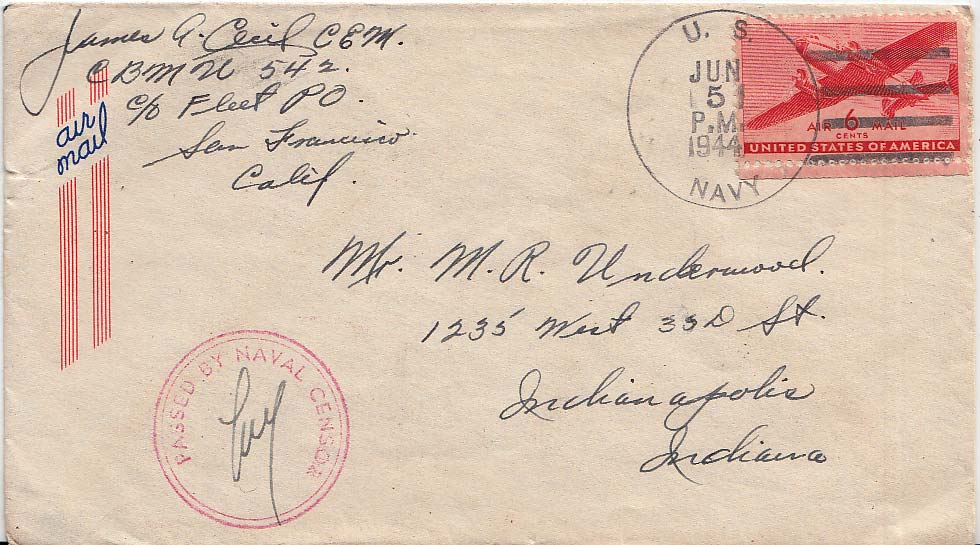 James A. Cecil CEM.
CBMU 542.
c/o Fleet PO.
San Francisco
Calif.
air
mail
U. S.
JUN
5
P.M.
1944
NAVY
AIR 6 MAIL
CENTS
UNITED STATES OF AMERICA
Mr. M. R. Underwood.
1235 West 33D St.
Indianapolis
Indiana
PASSED BY NAVAL CENSOR